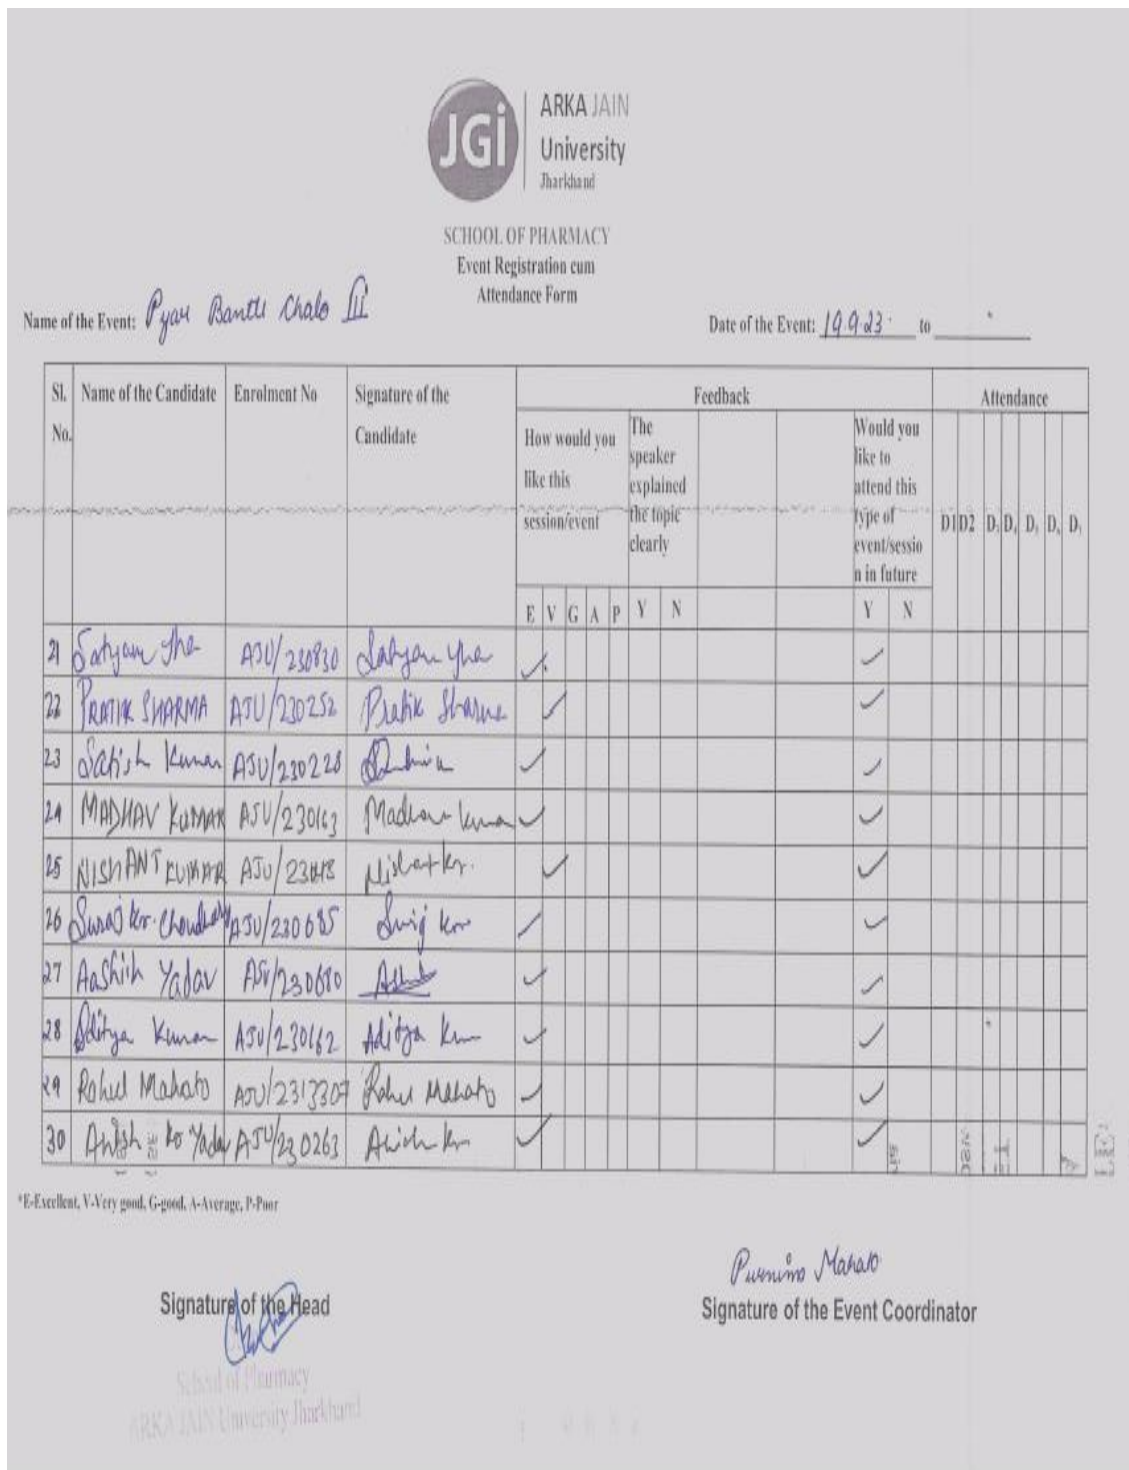 JGi
ARKA JAIN
University
Jharkhand
SCHOOL OF PHARMACY
Event Registration cum
Attendance Form
Name of the Event: Pyar Bantte Chalo III
Date of the Event: 19.9.23 to
Sl. No. Name of the Candidate Enrolment No Signature of the Candidate Feedback Attendance
How would you like this session/event The speaker explained the topic clearly Would you like to attend this type of event/sessio n in future D1 D2 D D D D D
E V G A P Y N Y N
21 Satyam Jha AJU/230830 Satyam Jha
22 PRATIK SHARMA AJU/230252 Pratik Sharma
23 Satish Kumar AJU/230228
24 MADHAV KUMAR AJU/230163 Madhav Kumar
25 NISHANT KUMAR AJU/ Nishant Kr.
26 Suraj kr. Choudhary AJU/230685 Suraj kr
27 Aashish Yadav AJU/230680
28 Aditya Kumar AJU/230162 Aditya Km
29 Rahul Mahato AJU/2313307 Rahul Mahato
30 Anish kr Yadav AJU/230263 Anish kr
*E-Excellent, V-Very good, G-good, A-Average, P-Poor
Purnima Mahato
Signature of the Head
Signature of the Event Coordinator
School of Pharmacy
ARKA JAIN University Jharkhand